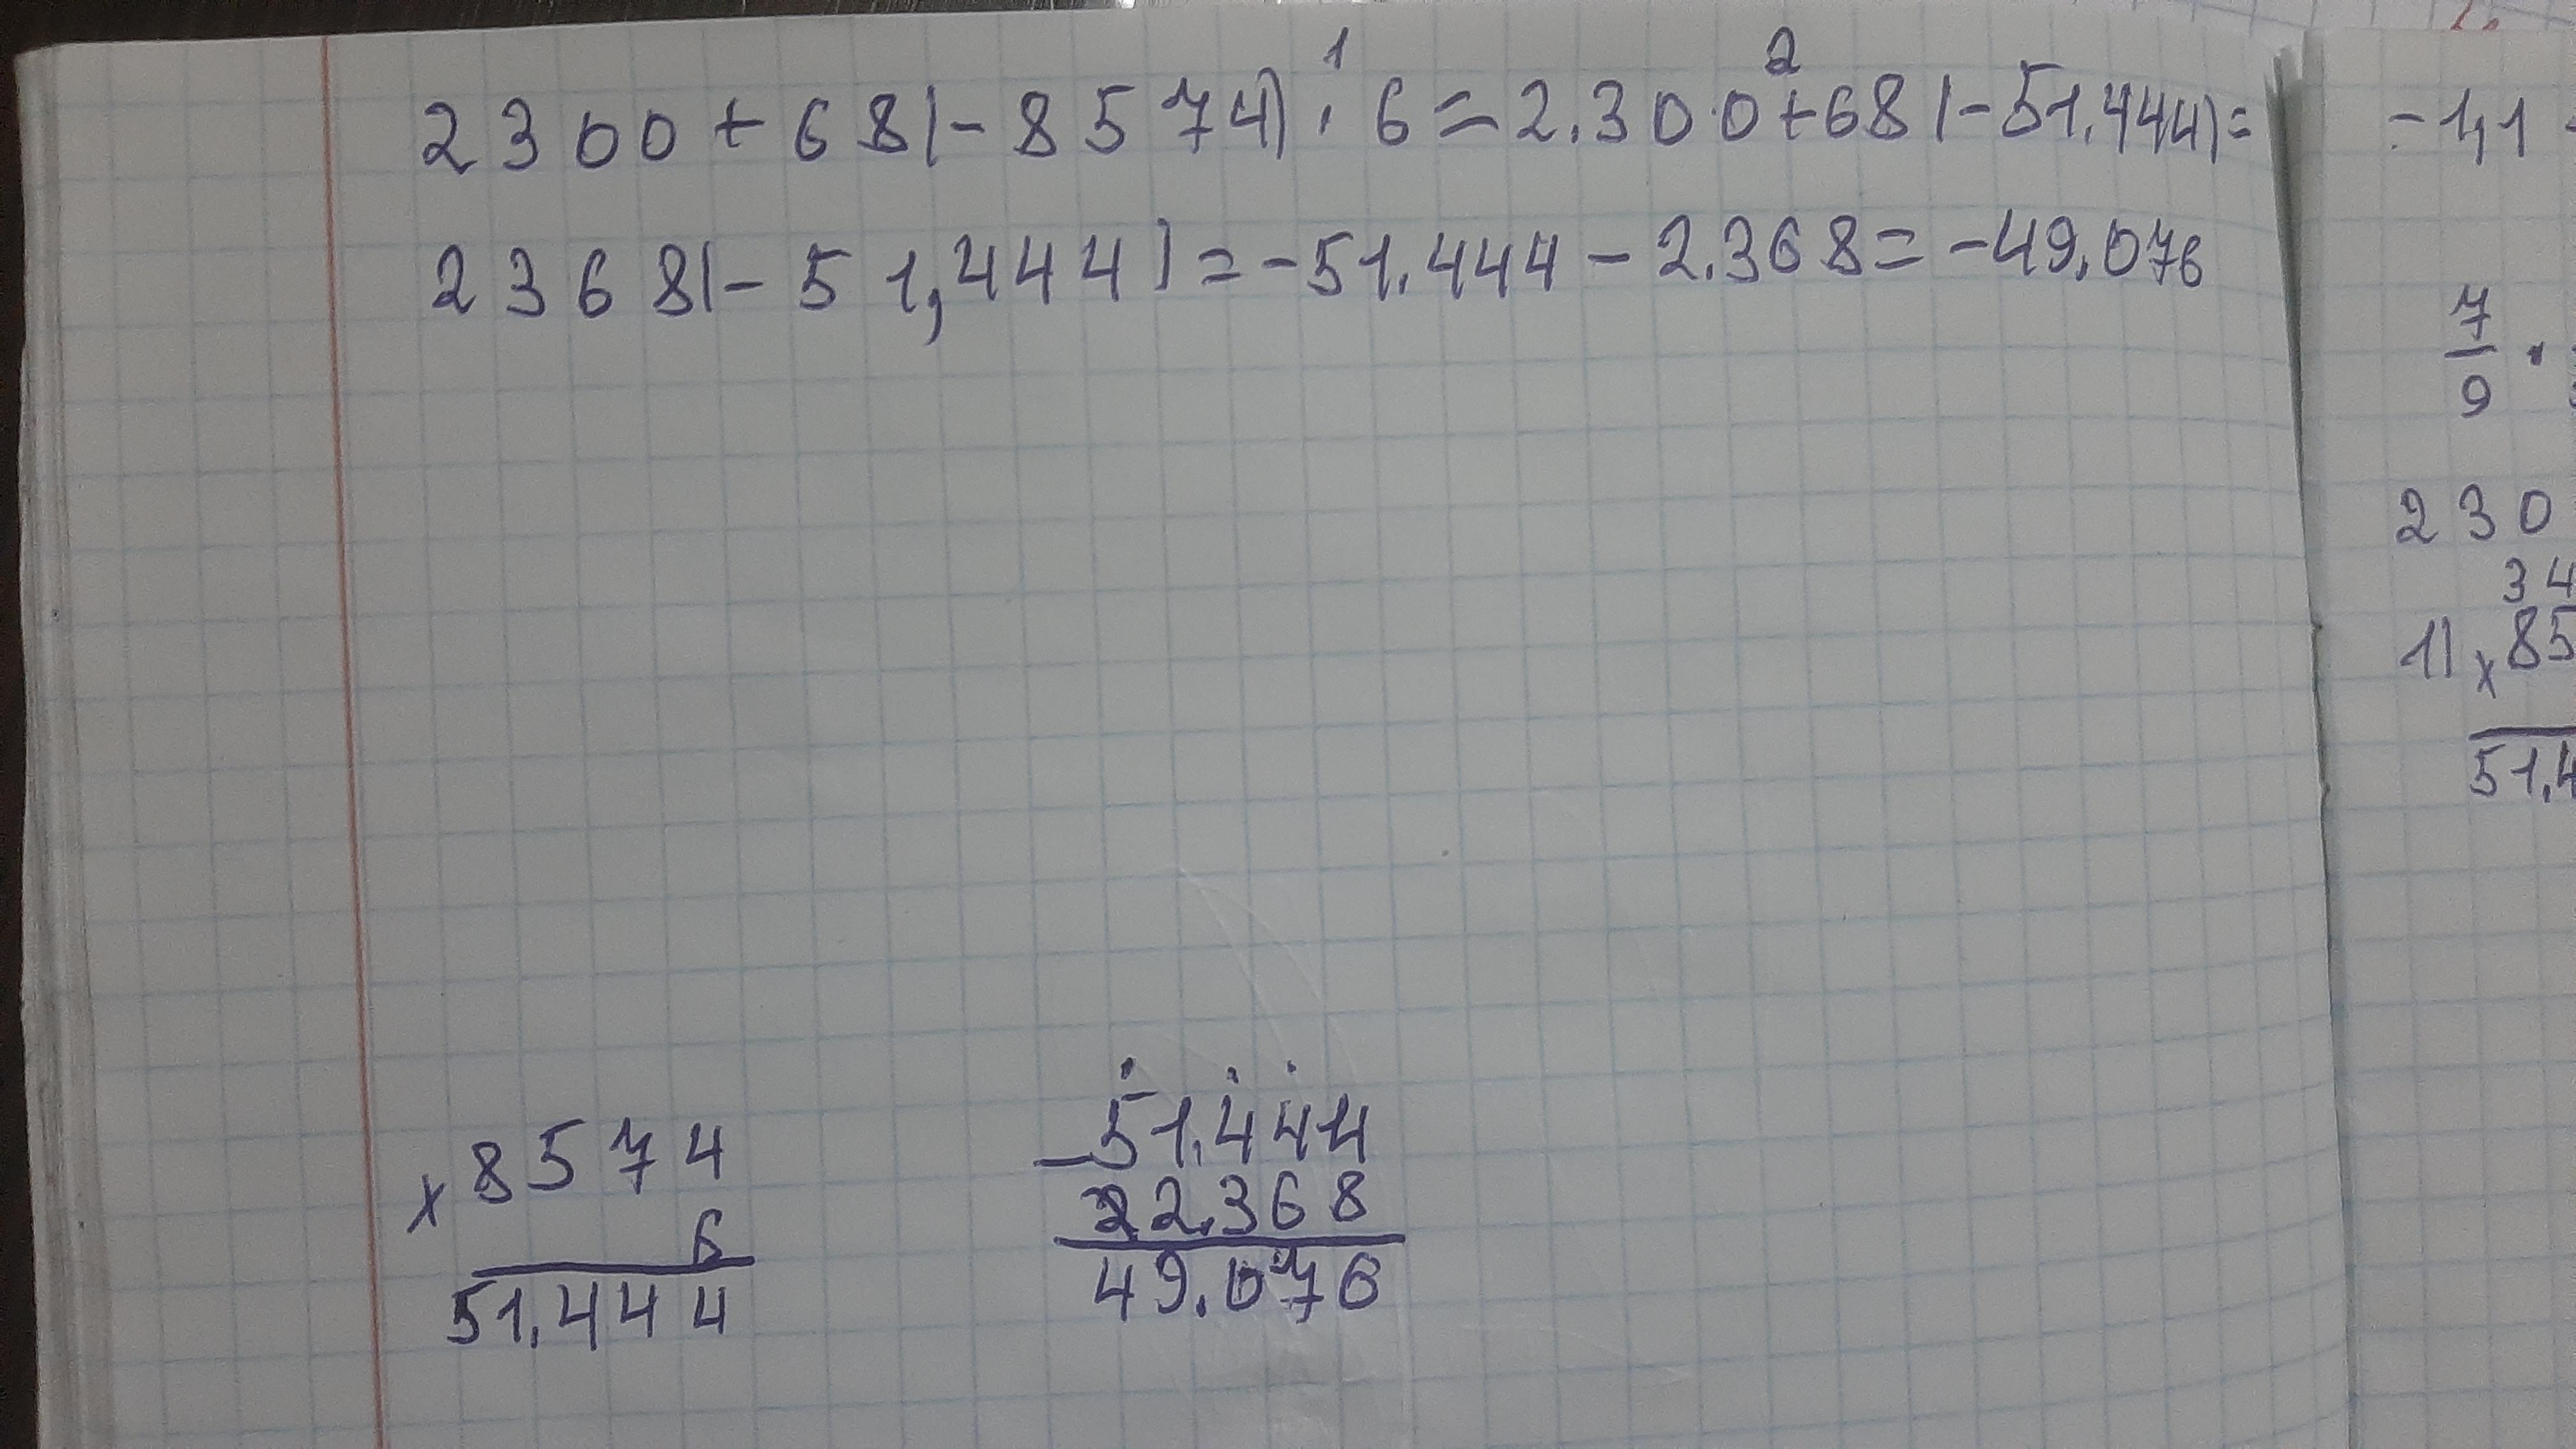 2300+68(-8574)·6=2.300+68(-51.444)=
1 2
2368(-51,444)=-51.444-2.368=-49.076
x 8574
6
51.444
-51.444
22.368
49.076
-1,1
7
9
·
230
34
1) x 85
51.4